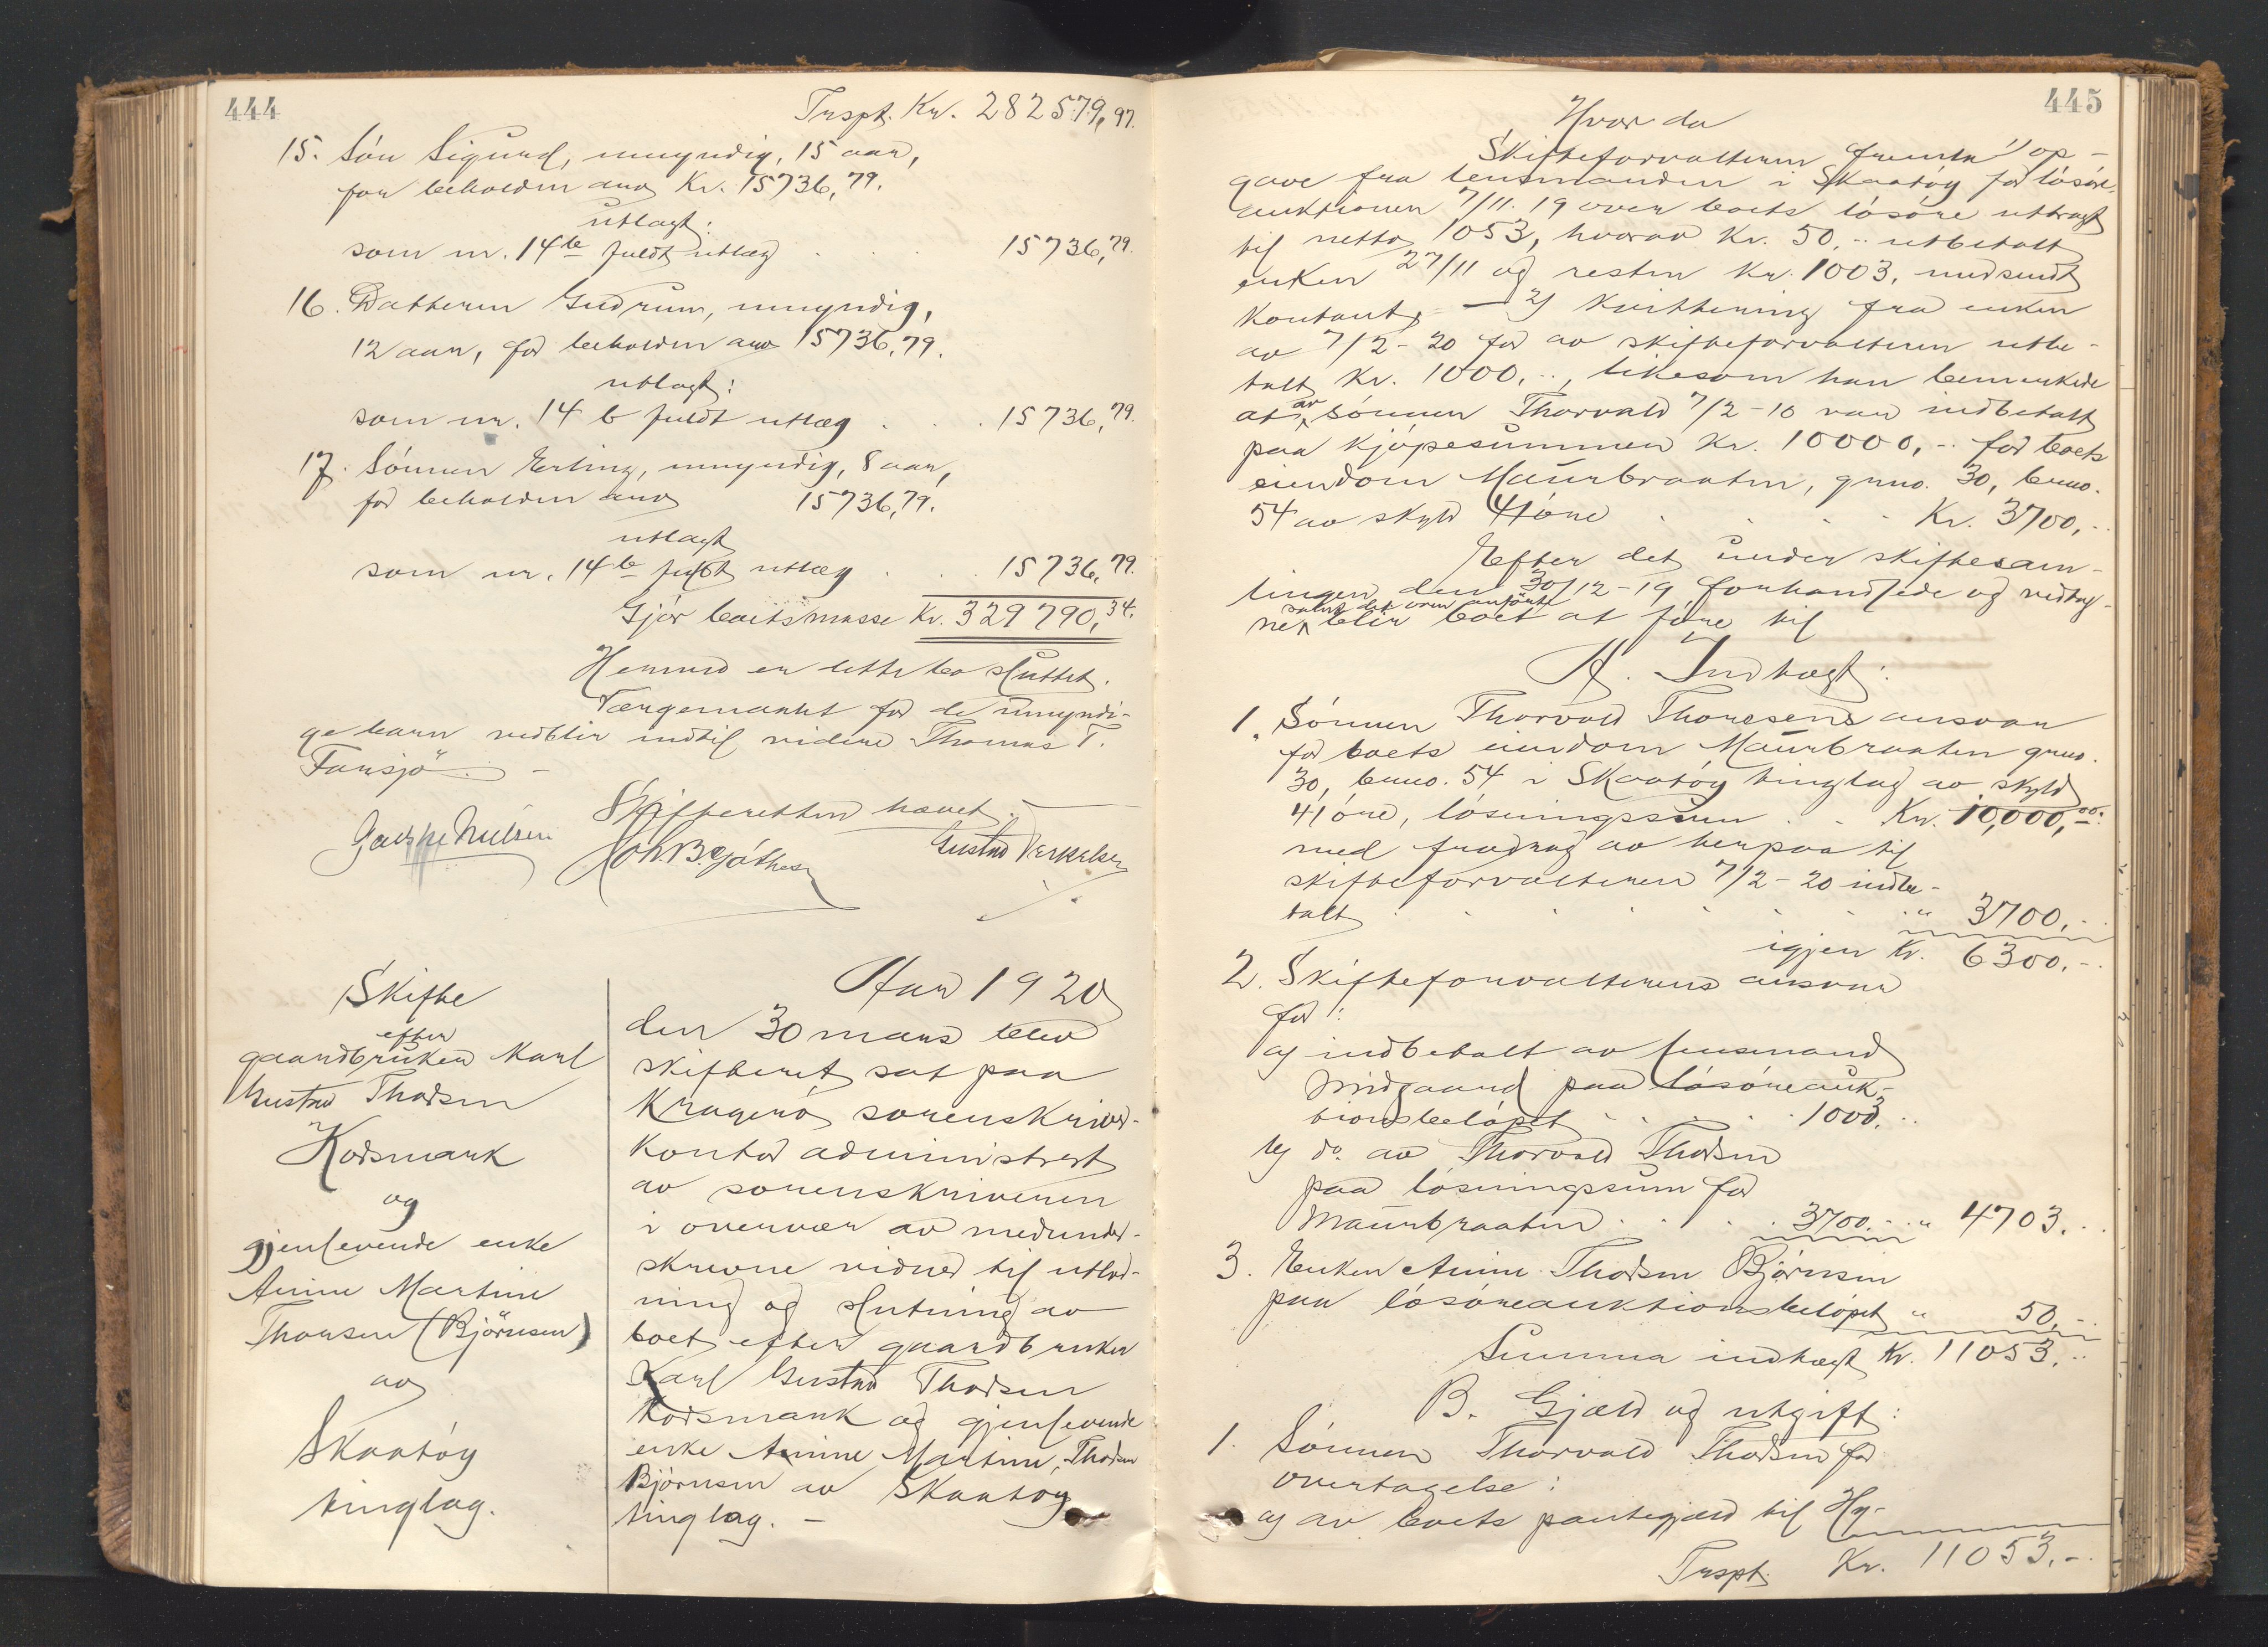 444
Trspt. Kr. 282579,97.
15. Søn Sigurd, umyndig, 15 aar,
for beholden arv Kr. 15736,79.
utlagt:
som nr. 14 b fuldt utlæg . . . 15736,79.
16. Datteren Gudrun, umyndig,
12 aar, for beholden arv 15736,79.
utlagt:
som nr. 14 b fuldt utlæg . . . 15736,79.
17. Sønnen Erling, umyndig, 8 aar,
for beholden arv 15736,79.
utlagt
som nr. 14 b fuldt utlæg . . 15736,79.
Gjør boets masse Kr. 329790,34.
Hermed er dette bo sluttet.
Værgemaalet for de umyndi-
ge barn vedblir indtil videre Thomas T.
Farsjø. -
Skifteretten hævet.
Nielsen
Gustav
Skifte
efter
gaardbruker Karl
Gustav Thorsen
Korsmark
og
gjenlevende enke
Anine Martine
Thorsen (Bjørnsen)
av
Skaatøy
tinglag.
Aar 1920
den 30 mars blev
skifteret sat paa
Kragerø sorenskriver-
kontor administrert
av sorenskriveren
i overvær av medunder-
skrevne vidner til utlod-
ning og slutning av
boet efter gaardbruker
Karl Gustav Thorsen
Korsmark og gjenlevende
enke Anine Martine Thorsen
Bjørnsen av Skaatøy
tinglag. -
445
Hvor da
Skifteforvalteren fremla 1) op-
gave fra lensmanden i Skaatøy for løsøre-
auktionen 7/11.19 over boets løsøre utbragt
til netto 1053, hvorav Kr. 50,- utbetalt
enken 27/11 og resten Kr. 1003, indsendt
kontant, - 2) Kvittering fra enken
av 7/2-20 for av skifteforvalteren utbe-
talt Kr. 1000,-, likesom han bemerkede
at av sønnen Thorvald 7/2-10 var indbetalt
paa kjøpesummen Kr. 10000,- for boets
eiendom Maurbraaten, grno. 30, brno.
54 av skyld 41 øre . . . . Kr. 3700,-
Efter det under skiftesam-
lingen den 30/12-19 forhandlede og vedtag-
ne samt det oven anførte blir boet at føre til
A. Indtægt:
1. Sønnen Thorvald Thoresens ansvar
for boets eiendom Maurbraaten grno.
30, brno. 54 i Skaatøy tinglag av skyld
41 øre, løsningssum . . Kr. 10,000,00.
med fradrag av herpaa til
skifteforvalteren 7/2-20 indbe-
talt . . . . . . . " 3700,-
igjen Kr. 6300,-
2. Skifteforvalterens ansvar
for:
a) indbetalt av lensmand
Midgaard paa løsøreauk-
tionsbeløpet . . . . 1003,-
b) do. av Thorvald Thorsen
paa løsningssum for
Maurbraaten . . . . 3700,- " 4703,-
3. Enken Anine Thorsen Bjørnsen
paa løsøreauktionsbeløpet " 50,-
Summa indtægt Kr. 11053,-
B. Gjæld og utgift:
1. Sønnen Thorvald Thorsen for
overtagelse:
a) av boets pantegjæld til Hy-
Trspt. Kr. 11053,-